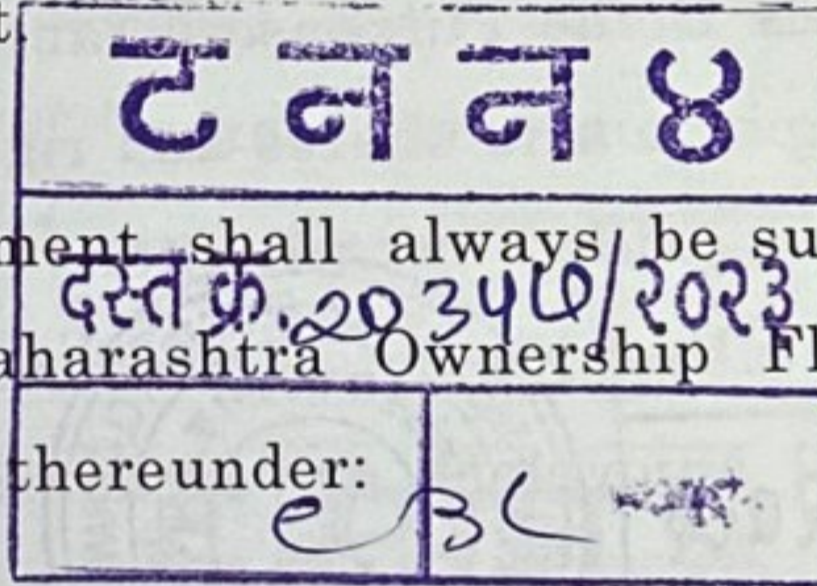 t.
ट न न ४
ment shall always be su
दस्त क्र. २०३५७/२०२३
aharashtra Ownership Fl
thereunder:
९ ३८